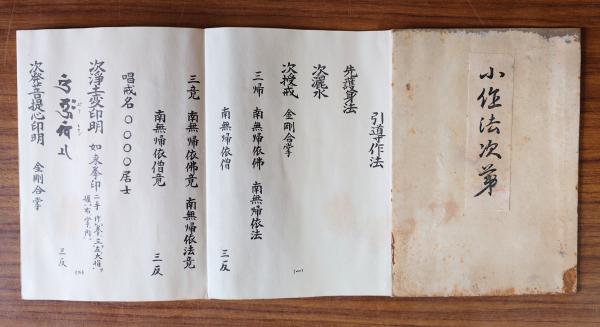 小作法次第
引導作法
先護身法
次灑水
次授戒 金剛合掌
三帰 南無帰依佛 南無帰依法
南無帰依僧 三反
(一)
三竟 南無帰依佛竟 南無帰依法竟
南無帰依僧竟 三反
唱戒名〇〇〇〇居士
次浄土変印明 如来拳印
三反
次発菩提心印明 金剛合掌
(二)